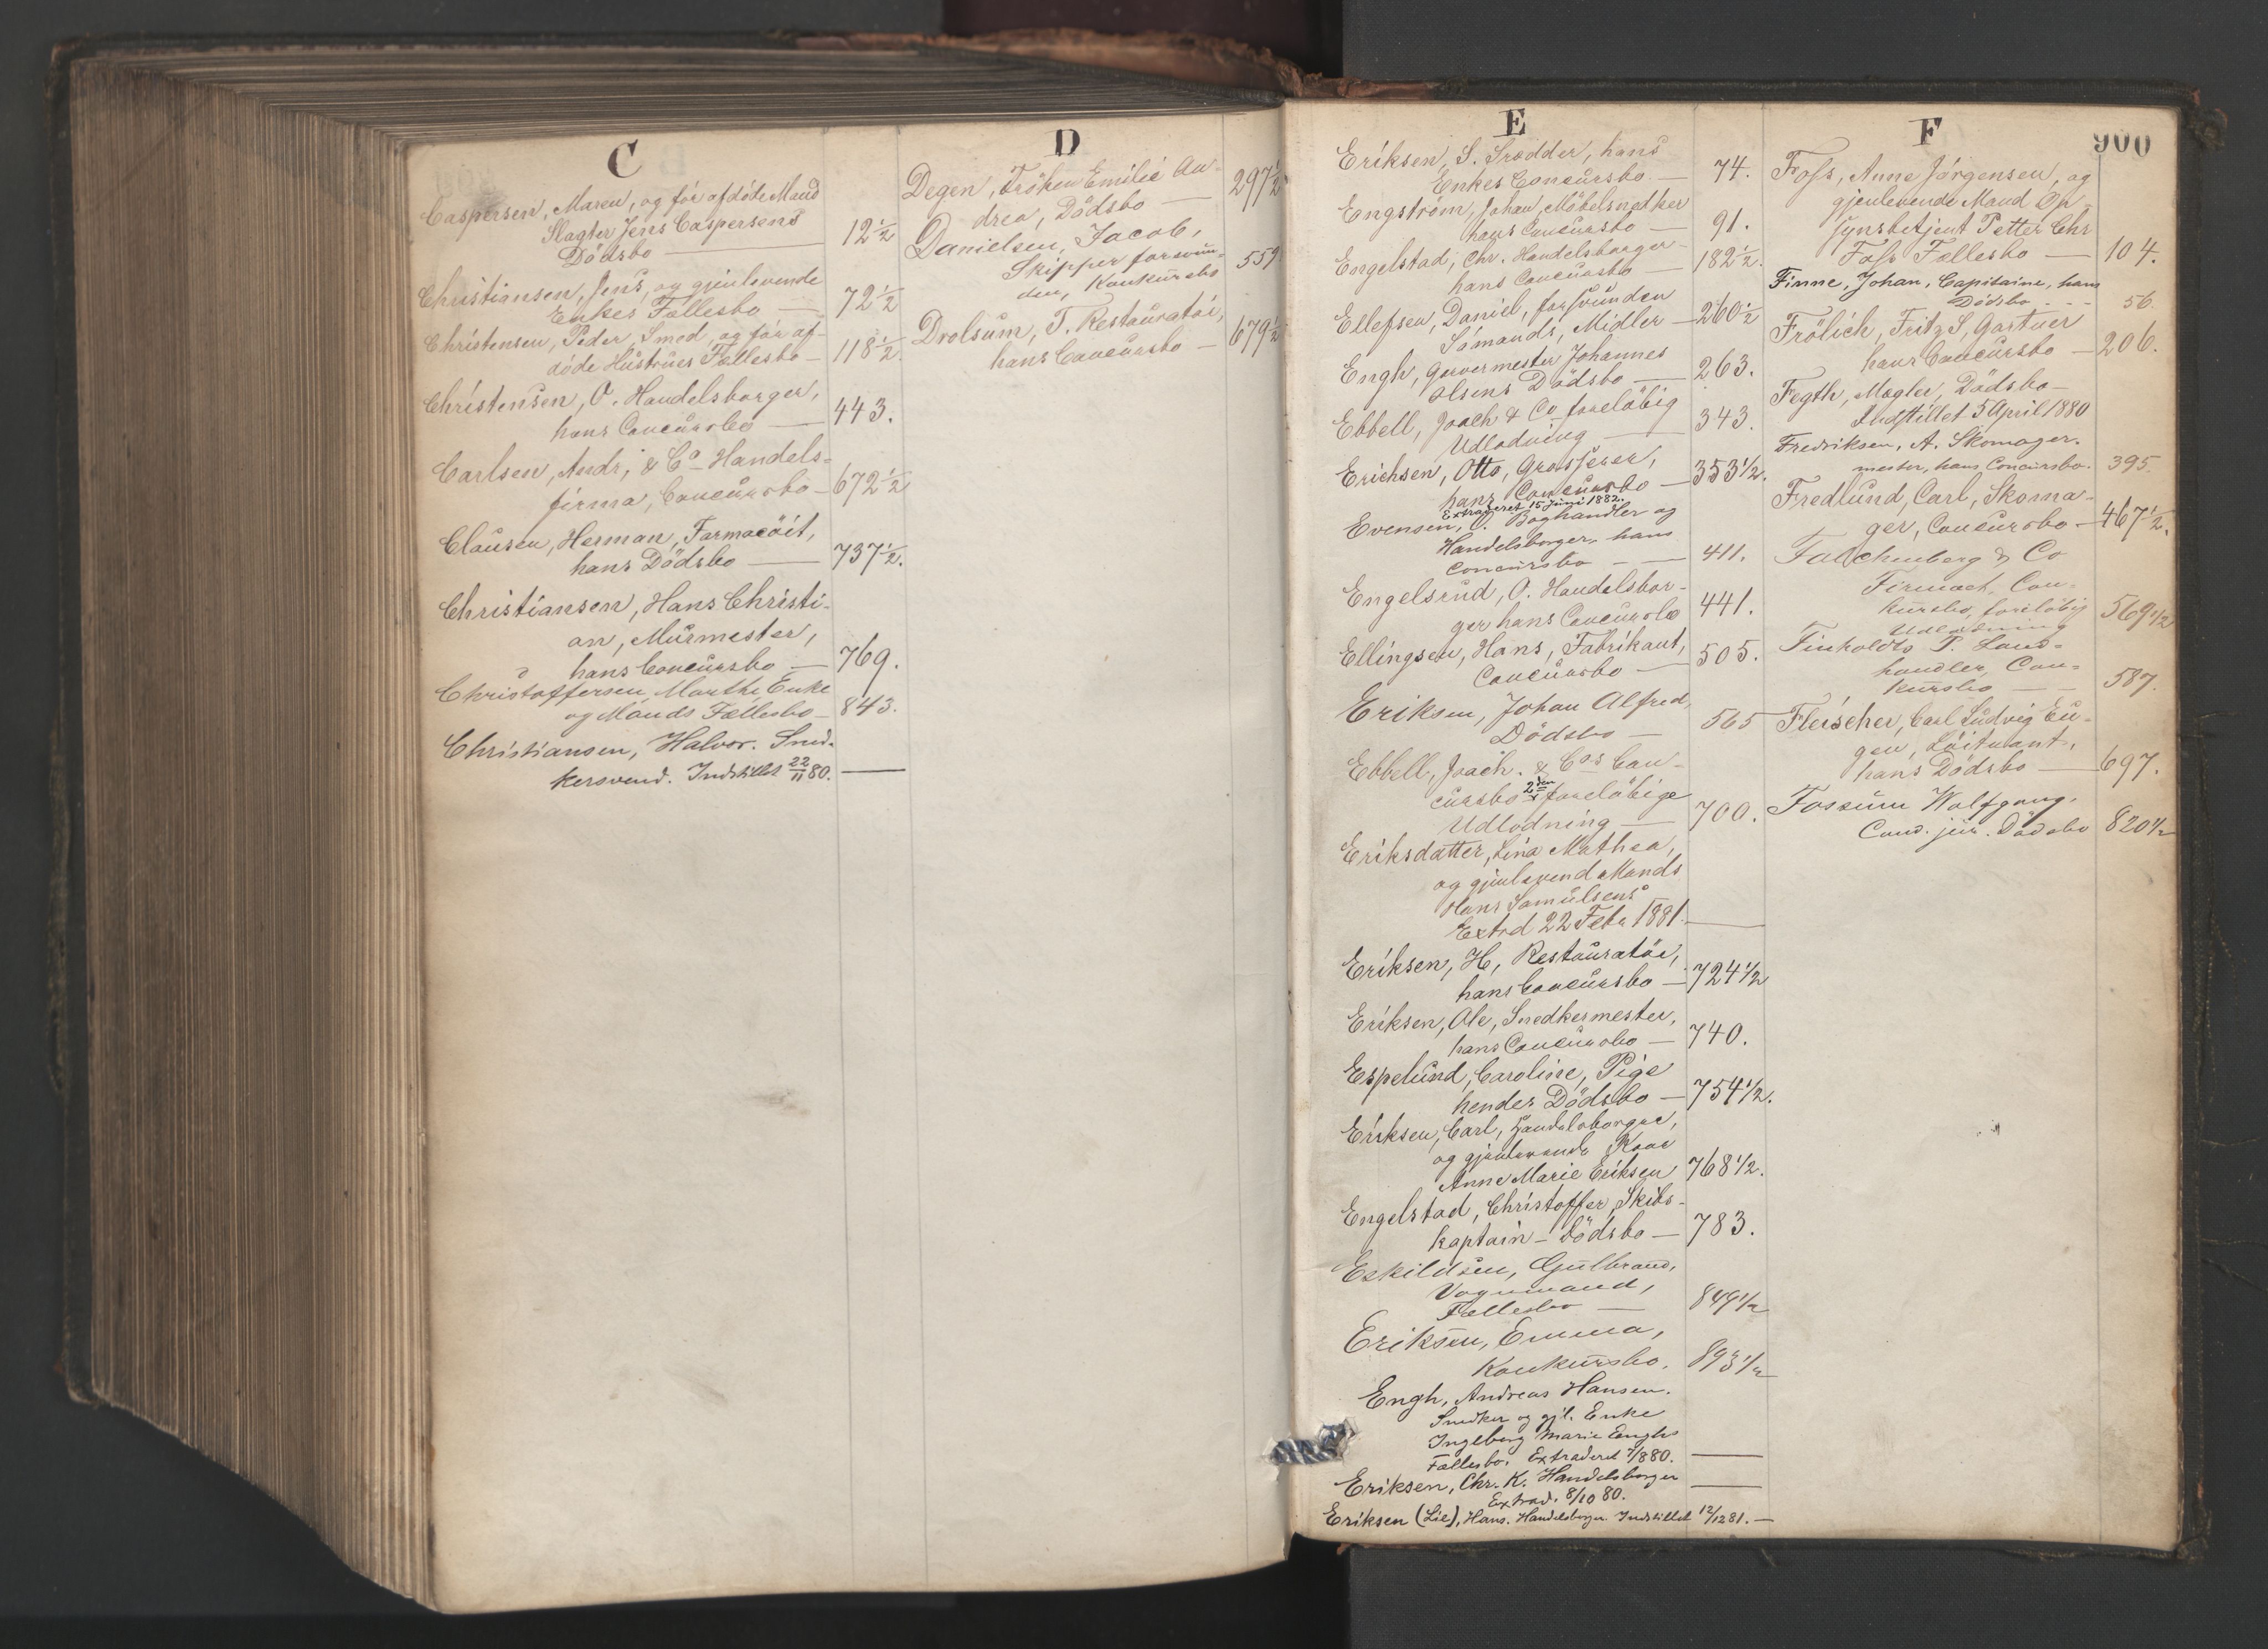 C
Caspersen, Maren, og før afdøde Mand
Slagter Jens Caspersens
Dödsbo — 12½
Christiansen, Jens, og gjenlevende
Enkes Fællesbo — 72½
Christensen, Peder, Smed, og før af-
døde Hustrues Fællesbo — 118½.
Christensen, O. Handelsborger,
hans Concursbo — 443.
Carlsen, Andr. & Co Handels-
firma, Concursbo — 672½
Clausen, Herman, Farmacöit,
hans Dödsbo — 737½.
Christiansen, Hans Christi-
an, Murmester,
hans Concursbo — 769.
Christoffersen, Marthe, Enke
og Mands Fællesbo — 843.
Christiansen, Halvor. Sned-
kersvend. Indstillet 22/11 80. —
D
Degen, Fröken Emilie An-
drea, Dödsbo — 297½
Danielsen, Jacob,
Skipper forsvun-
den, Konkursbo 559.
Drolsum, T. Restauratör,
hans Concursbo — 679½
E
Eriksen, S. Skrædder, hans
Enkes Concursbo — 74.
Engström, Johan, Möbelsnedker
hans Concursbo — 91.
Engelstad, Chr. Handelsborger
hans Concursbo — 182½.
Ellefsen, Daniel, forsvunden
Sömands, Midler — 260½
Engh, Garvermester Johannes
Olsens Dödsbo — 263.
Ebbell, Joach & Co foreløbig
Udlodning — 343.
Erichsen, Otto, Grosserer,
hans Concursbo — 353½.
Extraderet 15 Juni 1882.
Evensen, O. Boghandler og
Handelsborger, hans
Concursbo — 411.
Engelsrud, O. Handelsbor-
ger hans Concursbo 441.
Ellingsen, Hans, Fabrikant,
Concursbo — 505.
Eriksen, Johan Alfred,
Dödsbo — 565
Ebbell, Joach. & Cos Con-
cursbo 2den foreløbige
Udlodning — 700.
Eriksdatter, Lina Mathea,
og gjenlevend Mands
Hans Samulsens
Extrd 22 Feb 1881. —
Eriksen, H, Restauratör,
hans Concursbo — 724½
Eriksen, Ole, Snedkermester,
hans Concursbo — 740.
Espelund, Caroline, Pige
hendes Dödsbo — 754½.
Eriksen, Carl, Handelsborger,
og gjenlevende Kone
Anne Marie Eriksen 768½.
Engelstad, Christoffer, Skibs-
kaptain - Dödsbo — 783.
Eskildsen, Gulbrand,
Vognmand,
Fællesbo — 849½
Eriksen, Emma,
Konkursbo. 893½
Engh, Andreas Hansen.
Snedker og gjl. Enke
Ingeborg Marie Enghs
Fællesbo. Extraderet 7/8 80. —
Eriksen, Chr. K. Handelsborger
Extrad. 8/10 80. —
Eriksen (Lie), Hans. Handelsborger Indstillet 12/12 81. —
F
900
Foss, Anne Jörgensen, og
gjenlevende Mand Op-
synsbetjent Petter Chr
Foss Fællesbo — 104.
Finne, Johan, Capitaine, hans
Dödsbo - - - 56.
Frölich, Fritz S, Gartner
hans Concursbo — 206.
Fegth, Mægler, Dödsbo —
Indstillet 5 April 1880
Fredriksen, A. Skomager-
mester, hans Concursbo. 395.
Fredlund, Carl, Skoma-
ger, Concursbo — 467½.
& Co
Firmaet, Con-
kursbo, foreløbig
Udlodning 569½
Finholdts P. Land-
handler, Con-
kursbo — 587.
Fleischer, Carl Ludvig Eu-
gen, Löitnant,
hans Dödsbo — 697.
Fossum Wolfgang,
Cand. jur. Dödsbo 820½